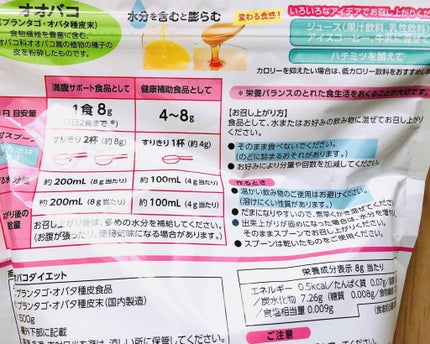 オオバコ
(プランタゴ・オバタ種皮末)
食物繊維を豊富に含む、
オオバコ科オオバコ属の植物の種子の
皮を粉砕したものです。
水分を含むと膨らむ
変わる食感!
いろいろなアイデアでお召し上がりくだ
ジュース(果汁飲料、乳性飲料)
ハチミツを加えて
カロリーを抑えたい場合は、低カロリー飲料をおすすめし
*栄養バランスのとれた食生活をおくることが大切です。
満腹サポート食品として
健康補助食品として
1食 8g
(1日2食まで)
4〜8g
すりきり 2杯 (約8g)
すりきり 1杯 (約4g)
約 200mL (8g当たり)
約 100mL (4g当たり)
約 200mL (8g当たり)
約 100mL (4g当たり)
お召し上がり後は、多めの水分を補給してください。
(お腹が張ったり、便秘気味になる場合があります。)
【お召し上がり方】
食品として、水またはお好みの飲み物に混ぜてお召し上が
ください。
● そのまま食べないでください。
(のどに詰まるおそれがあります。)
● お好みにより分量や回数を加減してください。
作るとき
● 温かい飲み物のご使用はお避けください。
(溶けにくい性質があります。)
● だまになりやすいので、素早くかき混ぜてくださ
● 出来上がりが固めになった場合は、水分を増や
そのままスプーンでお召し上がりください。
● スプーンは乾いたものをご使用ください。
バコダイエット
プランタゴ・オバタ種皮末
プランタゴ・オバタ種皮末(国内製造)
500g
欄外下部に記載
栄養成分表示 8g 当たり
エネルギー 0.5kcal/たんぱく質 0.07g/脂質
/炭水化物 7.26g (糖質 0.008g/食物繊維
/食塩相当量 0.009g
ご注意